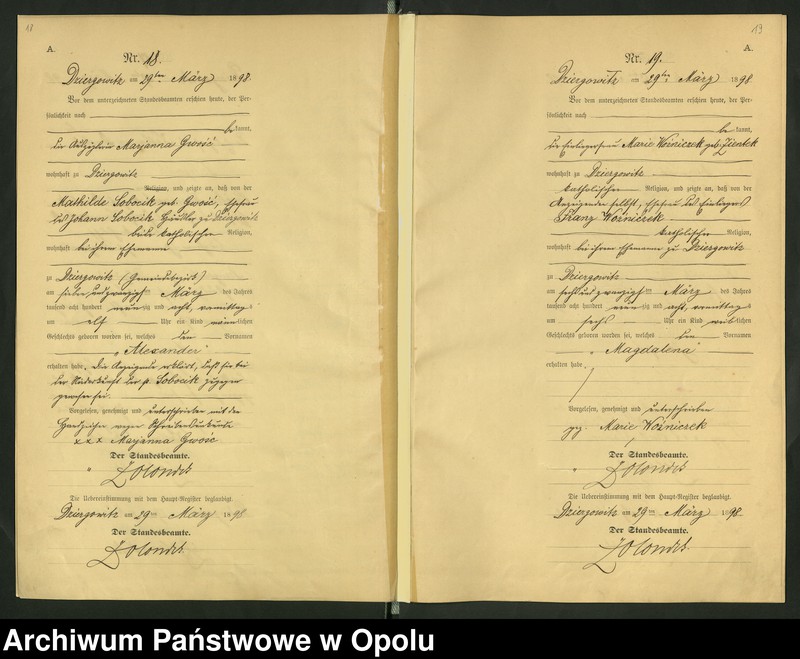 18
A.
Nr. 18.
Dziergowitz am 29ten März 1898.
Vor dem unterzeichneten Standesbeamten erschien heute, der Per-
sönlichkeit nach
bekannt,
die Auszüglerin Marjanna Gwosć
wohnhaft zu Dziergowitz
Religion, und zeigte an, daß von der
Mathilde Sobocik geb. Gwosć, Ehefrau
des Johann Sobocik Häusler zu Dziergowitz
beide katholischer Religion,
wohnhaft bei ihrem Ehemanne
zu Dziergowitz (Gemeindebezirk)
am sieben und zwanzigsten März des Jahres
tausend acht hundert neunzig und acht, vormittags
um elf Uhr ein Kind männlichen
Geschlechts geboren worden sei, welches den Vornamen
„Alexander
erhalten habe. Die Anzeigende erklärt, daß sie bei
der Niederkunft der p. Sobocik zugegen
gewesen sei.
Vorgelesen, genehmigt und unterschrieben mit den
Handzeichen wegen Schreibensunkunde
x x x Marjanna Gwosć
Der Standesbeamte.
" Zolondek
Die Uebereinstimmung mit dem Haupt-Register beglaubigt.
Dziergowitz am 29ten März 1898
Der Standesbeamte.
Zolondek
19
A.
Nr. 19.
Dziergowitz am 29ten März 1898
Vor dem unterzeichneten Standesbeamten erschien heute, der Per-
sönlichkeit nach
bekannt,
die Einliegerfrau Marie Woźniczek geb. Zientek
wohnhaft zu Dziergowitz
katholischer Religion, und zeigte an, daß von der
Anzeigenden selbst, Ehefrau des Einliegers
Franz Woźniczek
katholischer Religion,
wohnhaft bei ihrem Ehemanne zu Dziergowitz
zu Dziergowitz
am sechs und zwanzigsten März des Jahres
tausend acht hundert neunzig und acht, vormittags
um sechs Uhr ein Kind weiblichen
Geschlechts geboren worden sei, welches den Vornamen
„ Magdalena
erhalten habe
Vorgelesen, genehmigt und unterschrieben
gez. Marie Woźniczek
Der Standesbeamte.
" Zolondek
Die Uebereinstimmung mit dem Haupt-Register beglaubigt.
Dziergowitz am 29ten März 1898
Der Standesbeamte.
Zolondek
Archiwum Państwowe w Opolu